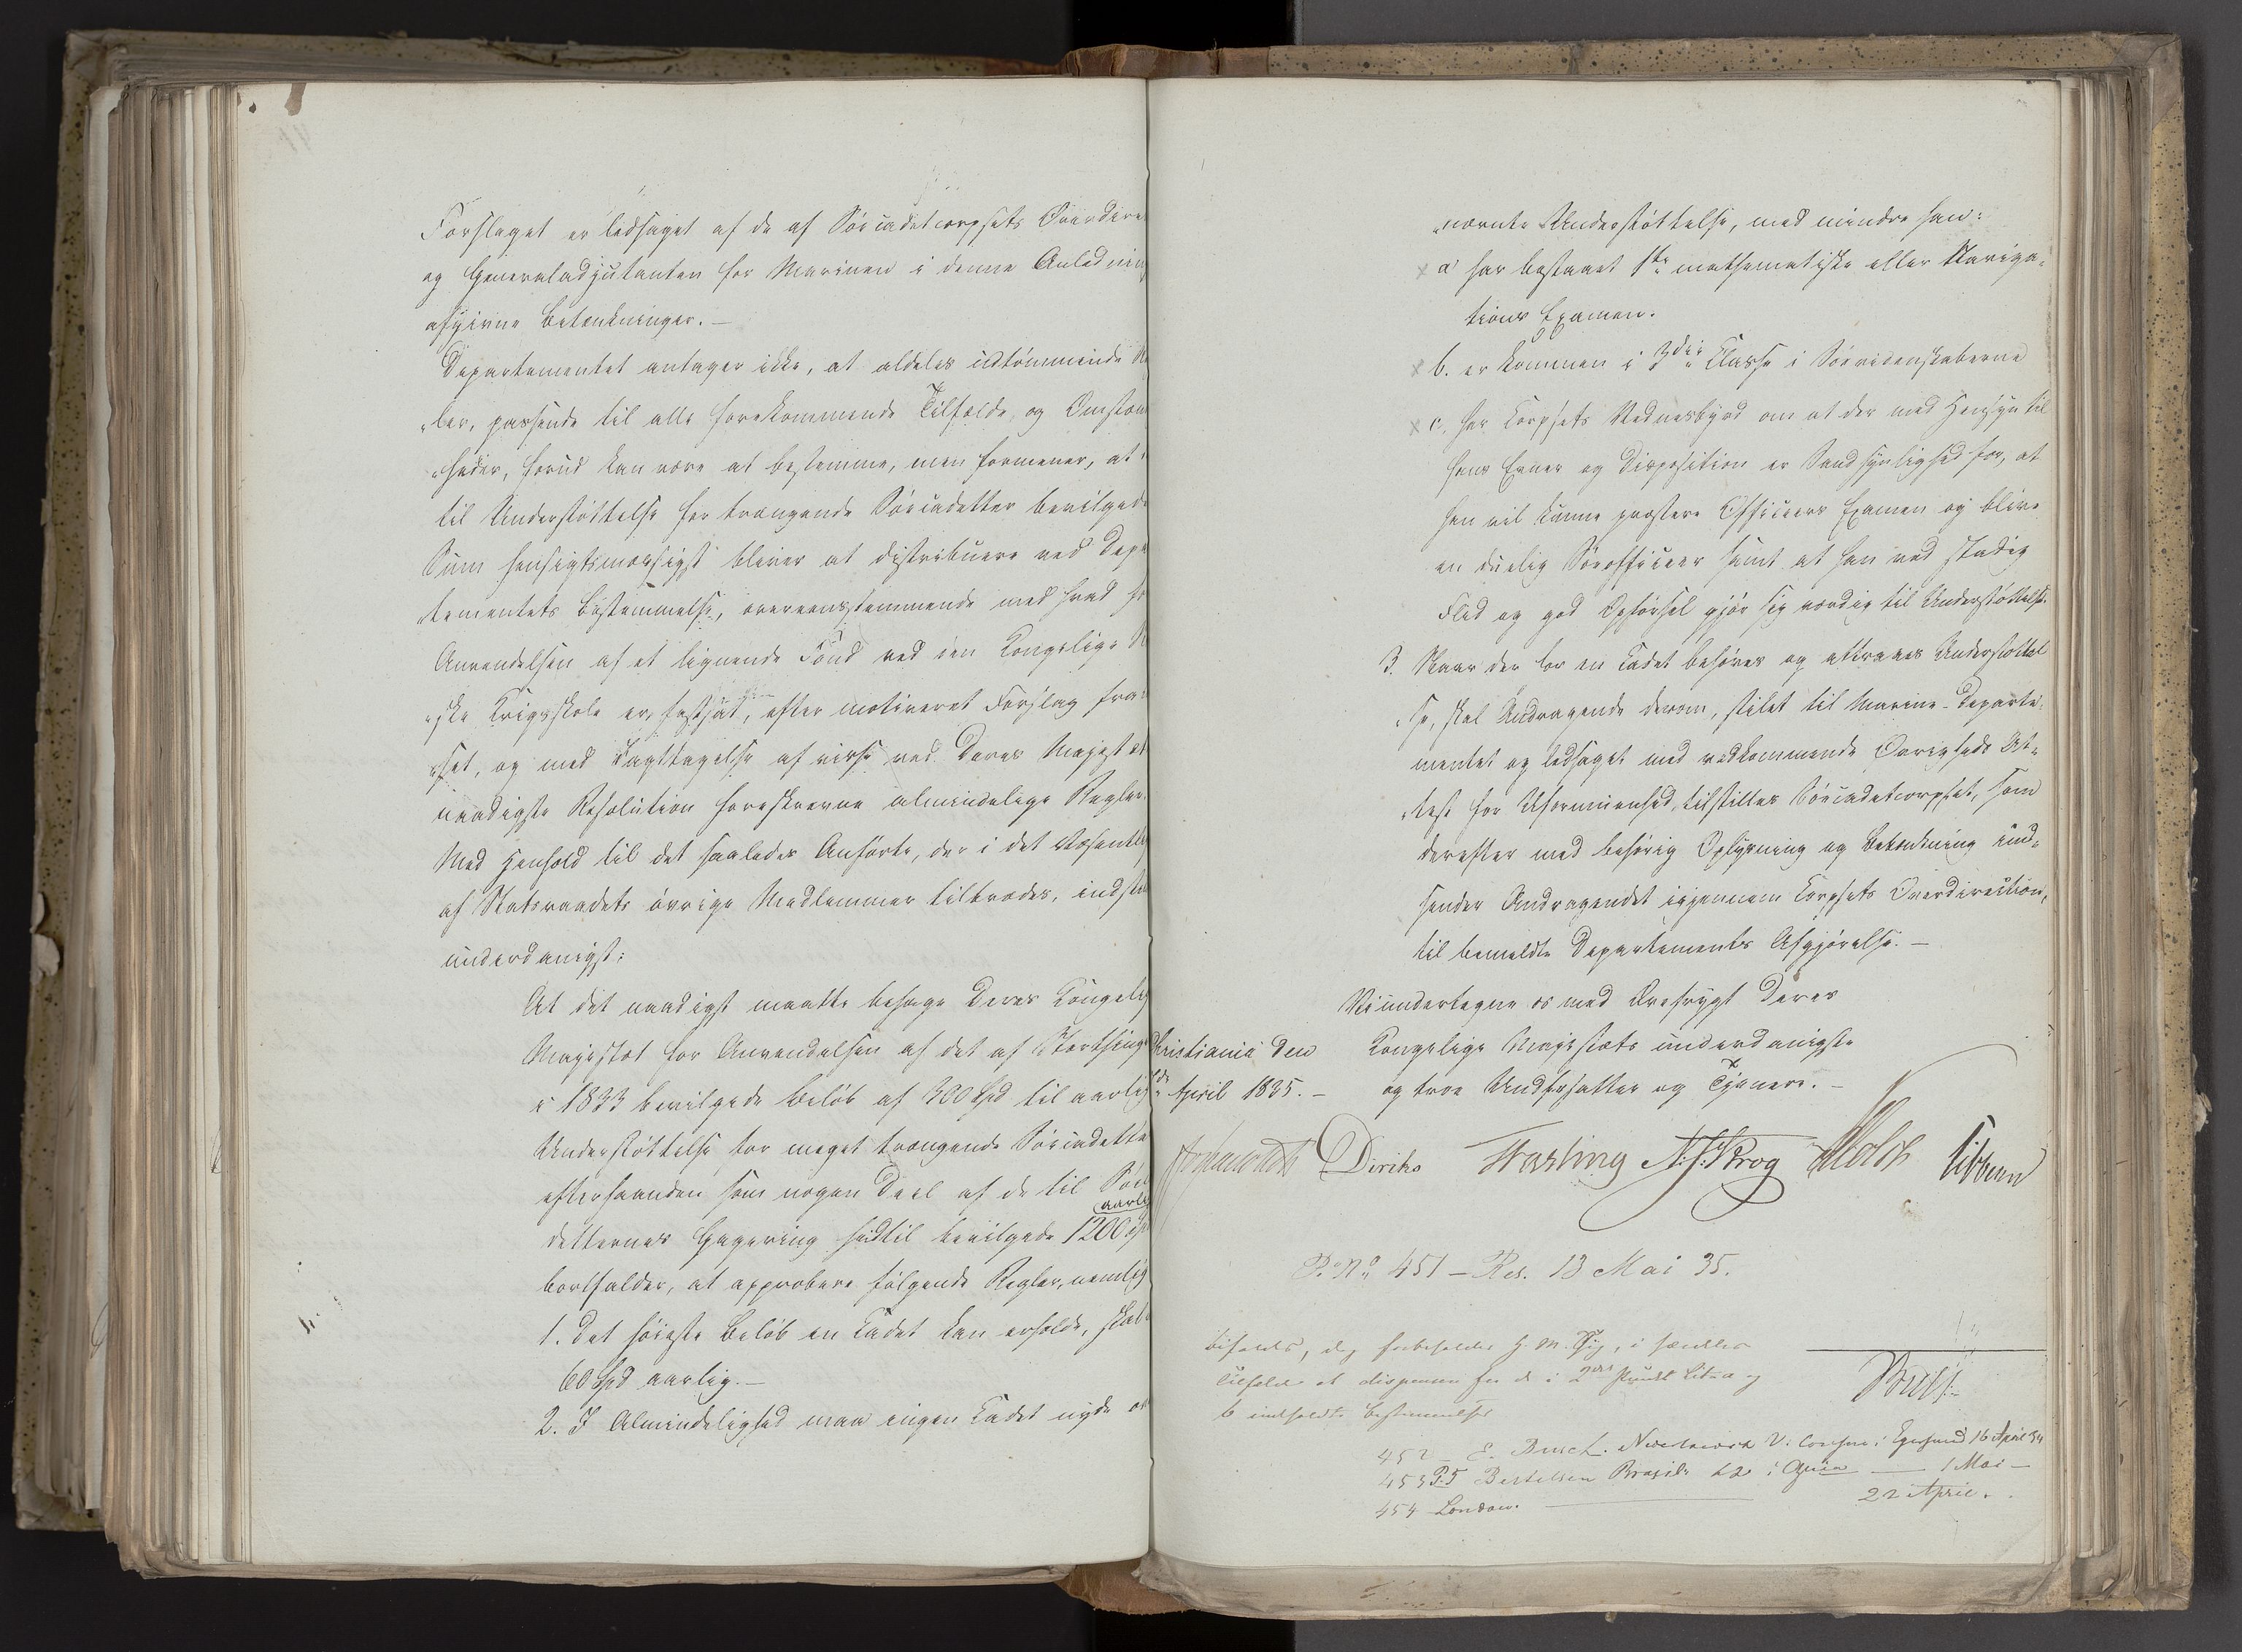 Forslaget er ledsaget af de af Söecadetcorpsets Overdire
og Generaladjutanten for Marinen i denne Anledning
afgivne Betænkninger. —
Departementet antager ikke, at aldeles udtömmende Re
ler, passende til alle forekommende Tilfælde og Omstæn
heder, forud kan være at bestemme, men formener, at
til Understöttelse for trængende Söecadetter bevilgede
Sum hensigtsmæssigst bliver at distribuere ved Depa
tementets Bestemmelse, overeensstemmende med hvad for
Anvendelsen af et lignende Fond ved den Kongelige No
ske Krigsskole er fastsat, efter motiveret Forslag fra
set, og med Iagttagelse af visse ved Deres Majestæt
naadigste Resolution foreskrevne almindelige Regler.
Med Henhold til det saaledes Anförte, der i det Væsentlig
af Statsraadets övrige Medlemmer tiltrædes, indstil
underdanigst:
At det naadigst maatte behage Deres Kongelig
Majestæt for Anvendelsen af det af Storthing
i 1833 bevilgede Belöb af 300 Spd til aarlig
Understöttelse for meget trængende Söecadette
efterhaanden som nogen Deel af de til Söeca
detternes Gagering hidtil bevilgede 1200 Sp
aarlig
bortfalder, at approbere fölgende Regler, nemlig
1. Det höieste Belöb en Cadet kan erholde, skal
60 Spd aarlig. —
2. I Almindelighed maa ingen Cadet nyde
nævnte Understöttelse, med mindre han:
a har bestaaet 1ste mathematiske eller Naviga-
tions Examen.
b. er kommen i 3die Classe i Söevidenskaberne
c. har Corpsets Vidnesbyrd om at der med Hensyn til
hans Evner og Disposition er Sandsynlighed for, at
han vil kunne præstere Officeers Examen og blive
en duelig Söeofficeer samt at han ved stadig
Flid og god Opförsel gjör sig værdig til Understöttelse.
3. Naar der for en Cadet behöves og attraaes Understöttel
se, skal Andragende derom, stilet til Marine-Departe-
mentet og ledsaget med vedkommende Övrigheds At-
test for Uformuenhed, tilstilles Söecadetcorpset, som
derefter med behörig Oplysning og Betænkning ind-
sender Andragendet igjennem Corpsets Overdirection,
til bemeldte Departements Afgjörelse. —
Vi undertegne os med Ærefrygt Deres
Christiania den Kongelige Majestæts underdanigste
April 1835. — og troe Undersatter og Tjenere. —
Diriks Fasting N. J. Krog Holst Sibbern
P. No 451 — Res. 13 Mai 35.
Bifaldes, dog forbeholder H. M. Sig, i særdeles
Tilfælde at dispensere fra de i 2det Punct Litra a og
b indholdte Bestemmelser
452 — E. Busch. V. Consul i Egersund 16 April 34
453 Bertelsen Brasil. — 1 Mai —
454 London. — 22 April.